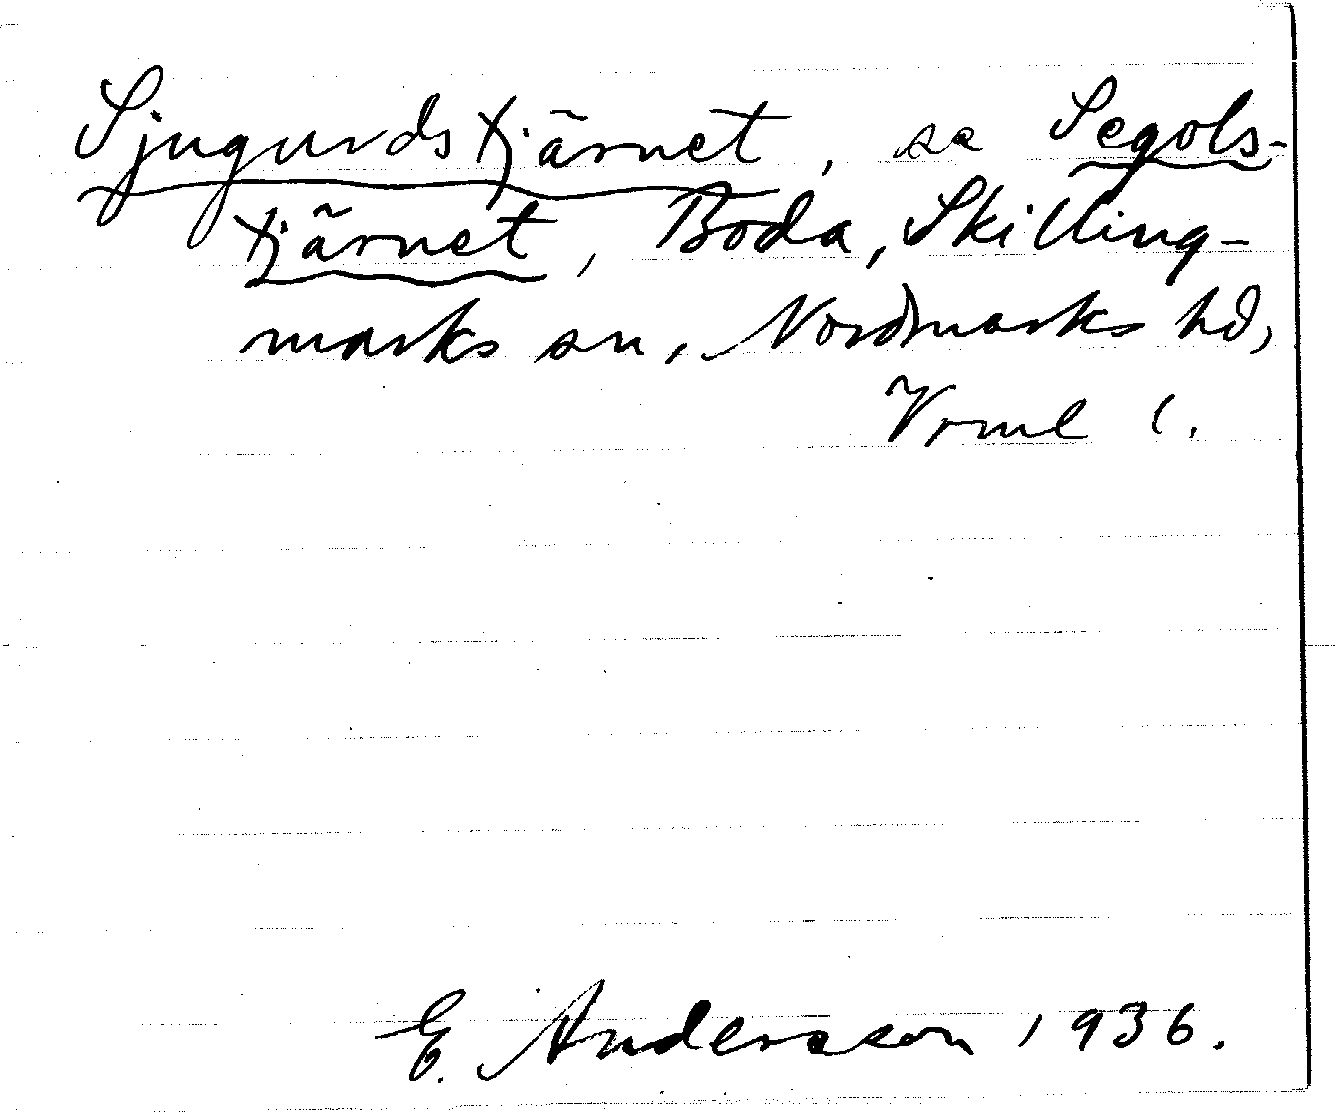 Sjugurdstjärnet, se Segols-
tjärnet, Boda, Skilling-
marks sn, Nordmarks hd,
Vrml l.
E. Andersson 1936.